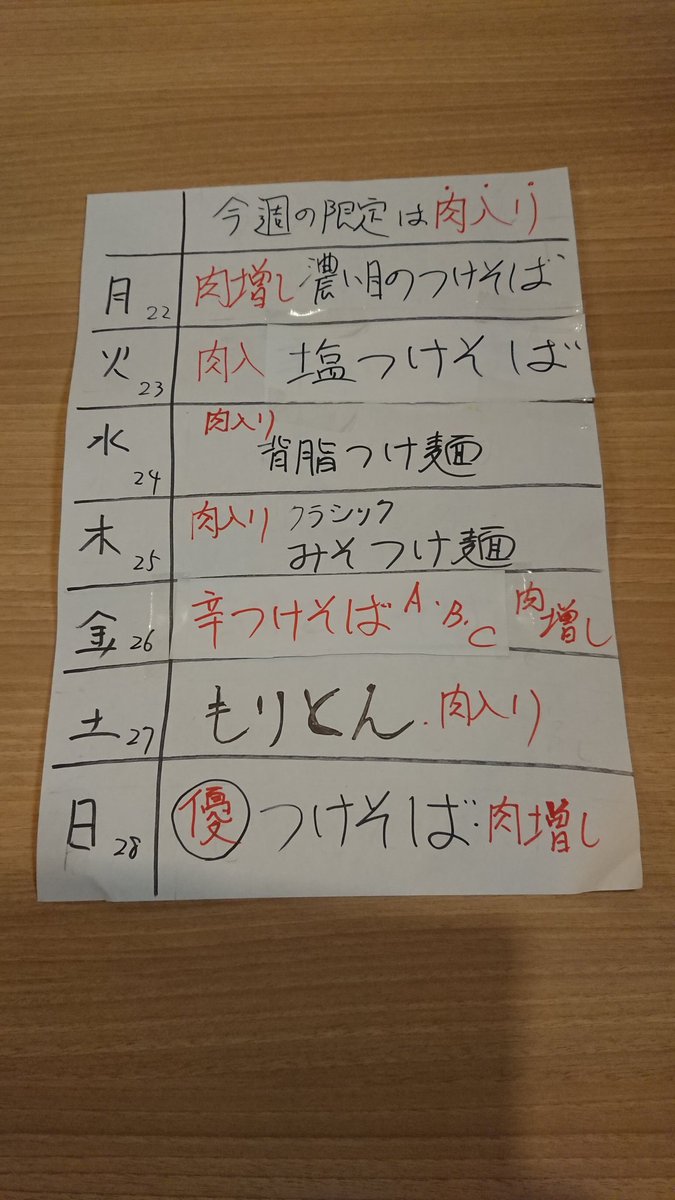 今週の限定は肉入り
月22 肉増し 濃い目のつけそば
火23 肉入 塩つけそば
水24 肉入り
背脂つけ麺
木25 肉入り クラシック
みそつけ麺
金26 辛つけそば A・B・C 肉増し
土27 もりとん・肉入り
日28 優 つけそば・肉増し